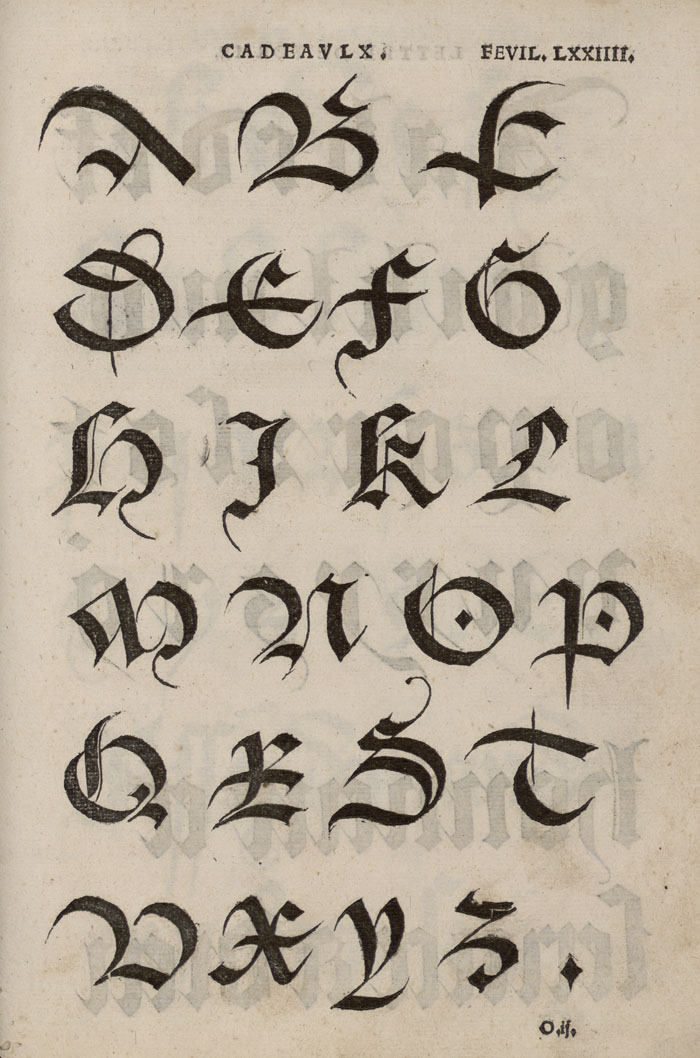 CADEAVLX. FEVIL. LXXIIII.
A B C
D E F G
H I K L
M N O P
Q R S T
V X Y Z .
O.ij.